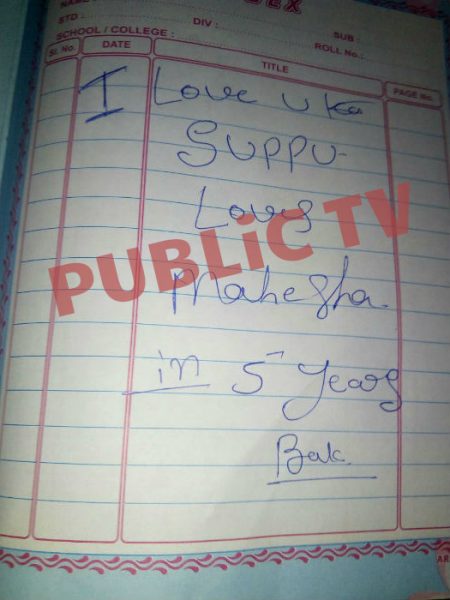 NAME
DEX
STD : DIV : SUB :
SCHOOL / COLLEGE : ROLL No.:
Sr. No. DATE TITLE PAGE No.
I Love u
Suppu
Loves
Mahesha.
in 5 Years
Bak.
PUBLiC TV
AR